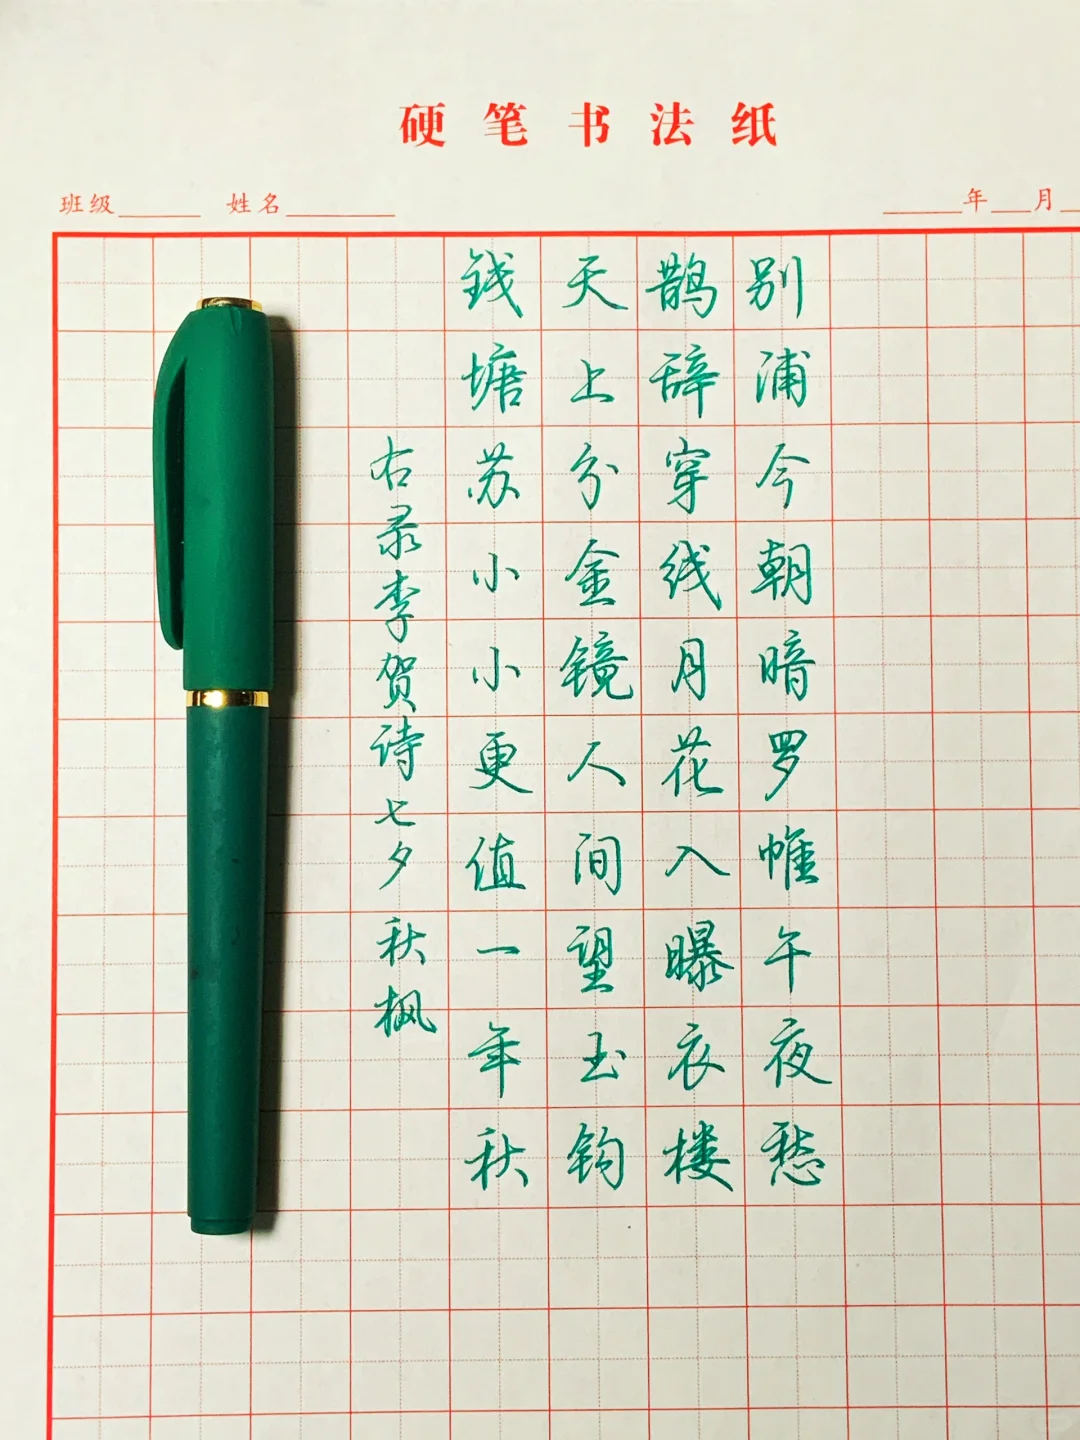 硬笔书法纸
班级 姓名 年 月
别浦今朝暗罗帷午夜愁
鹊辞穿线月花入曝衣楼
天上分金镜人间望玉钩
钱塘苏小小更值一年秋
右录李贺诗七夕秋枫